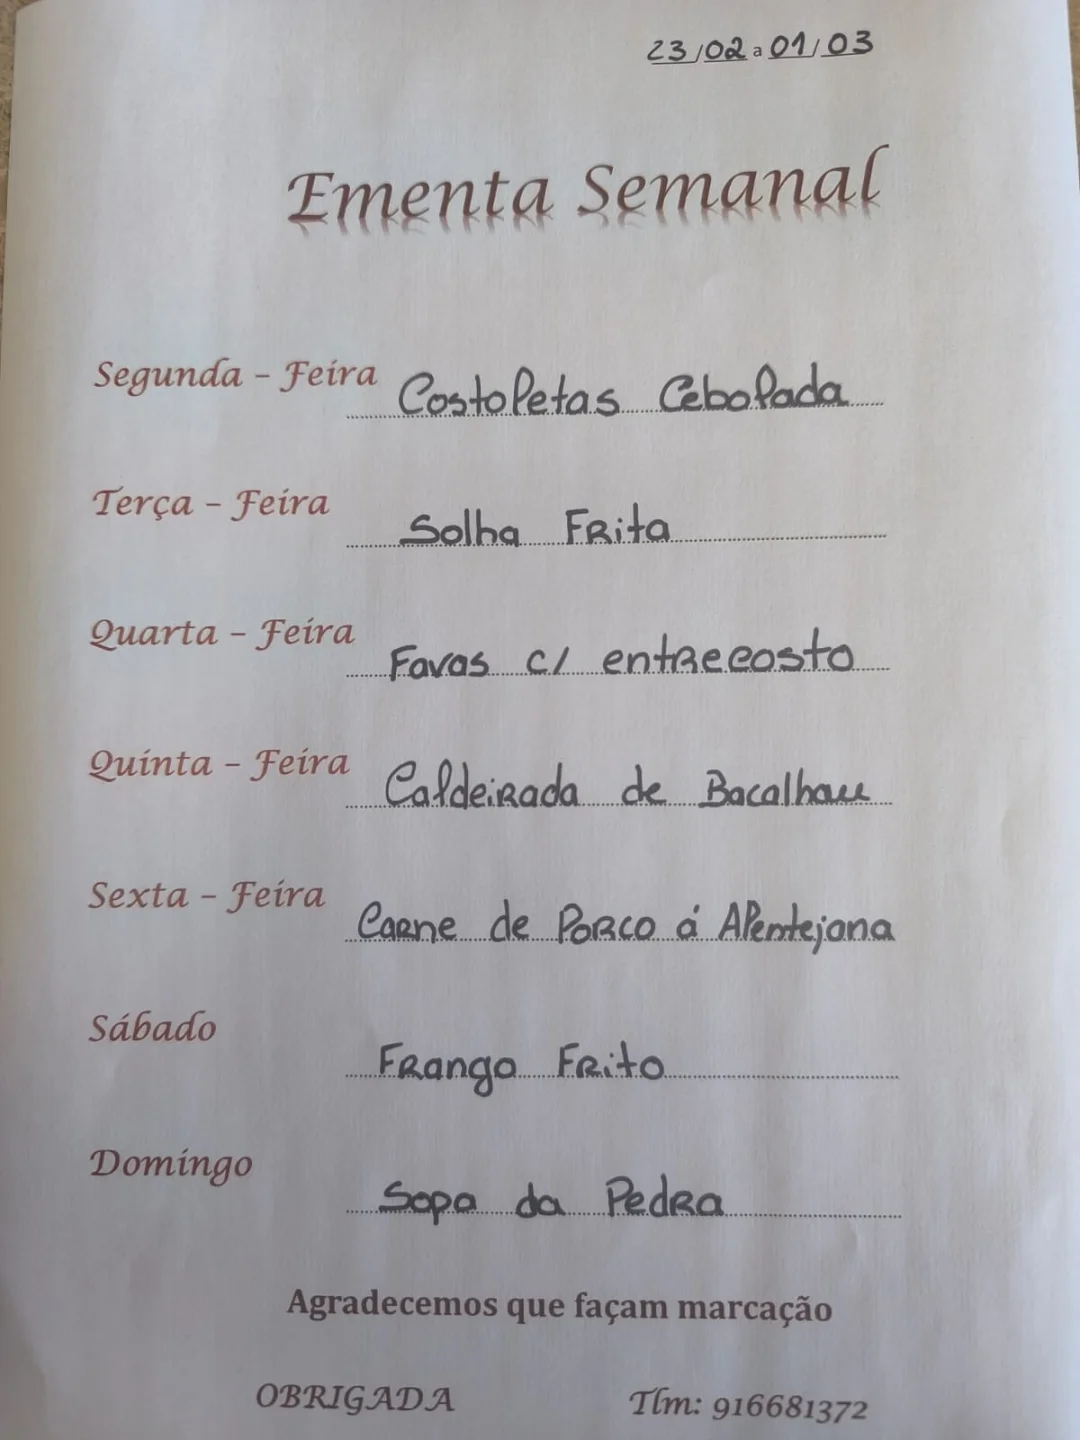 23/02 a 01/03
Ementa Semanal
Segunda - Feira Costoletas Cebolada
Terça - Feira Solha Frita
Quarta - Feira Favas c/ entrecosto
Quinta - Feira Caldeirada de Bacalhau
Sexta - Feira Carne de Porco á Alentejana
Sábado Frango Frito
Domingo Sopa da Pedra
Agradecemos que façam marcação
OBRIGADA Tlm: 916681372